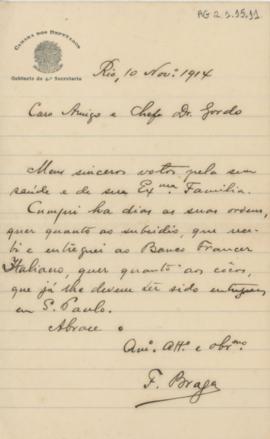 AG 2.3.15.11
CAMARA DOS DEPUTADOS
Gabinete do 4º Secretario
Rio, 10 Nov.º 1914
Caro Amigo e Chefe Dr. Gordo
Meus sinceros votos pela sua
saúde e de sua Ex.ma Familia.
Cumpri ha dias as suas ordens,
quer quanto ao subsidio, que rece-
bi e entreguei ao Banco Francez
Italiano, quer quanto aos côcos,
que já lhe devem ter sido entregues
em S. Paulo.
Abrace o
Am.º Att.º e obr.mo
F. Braga